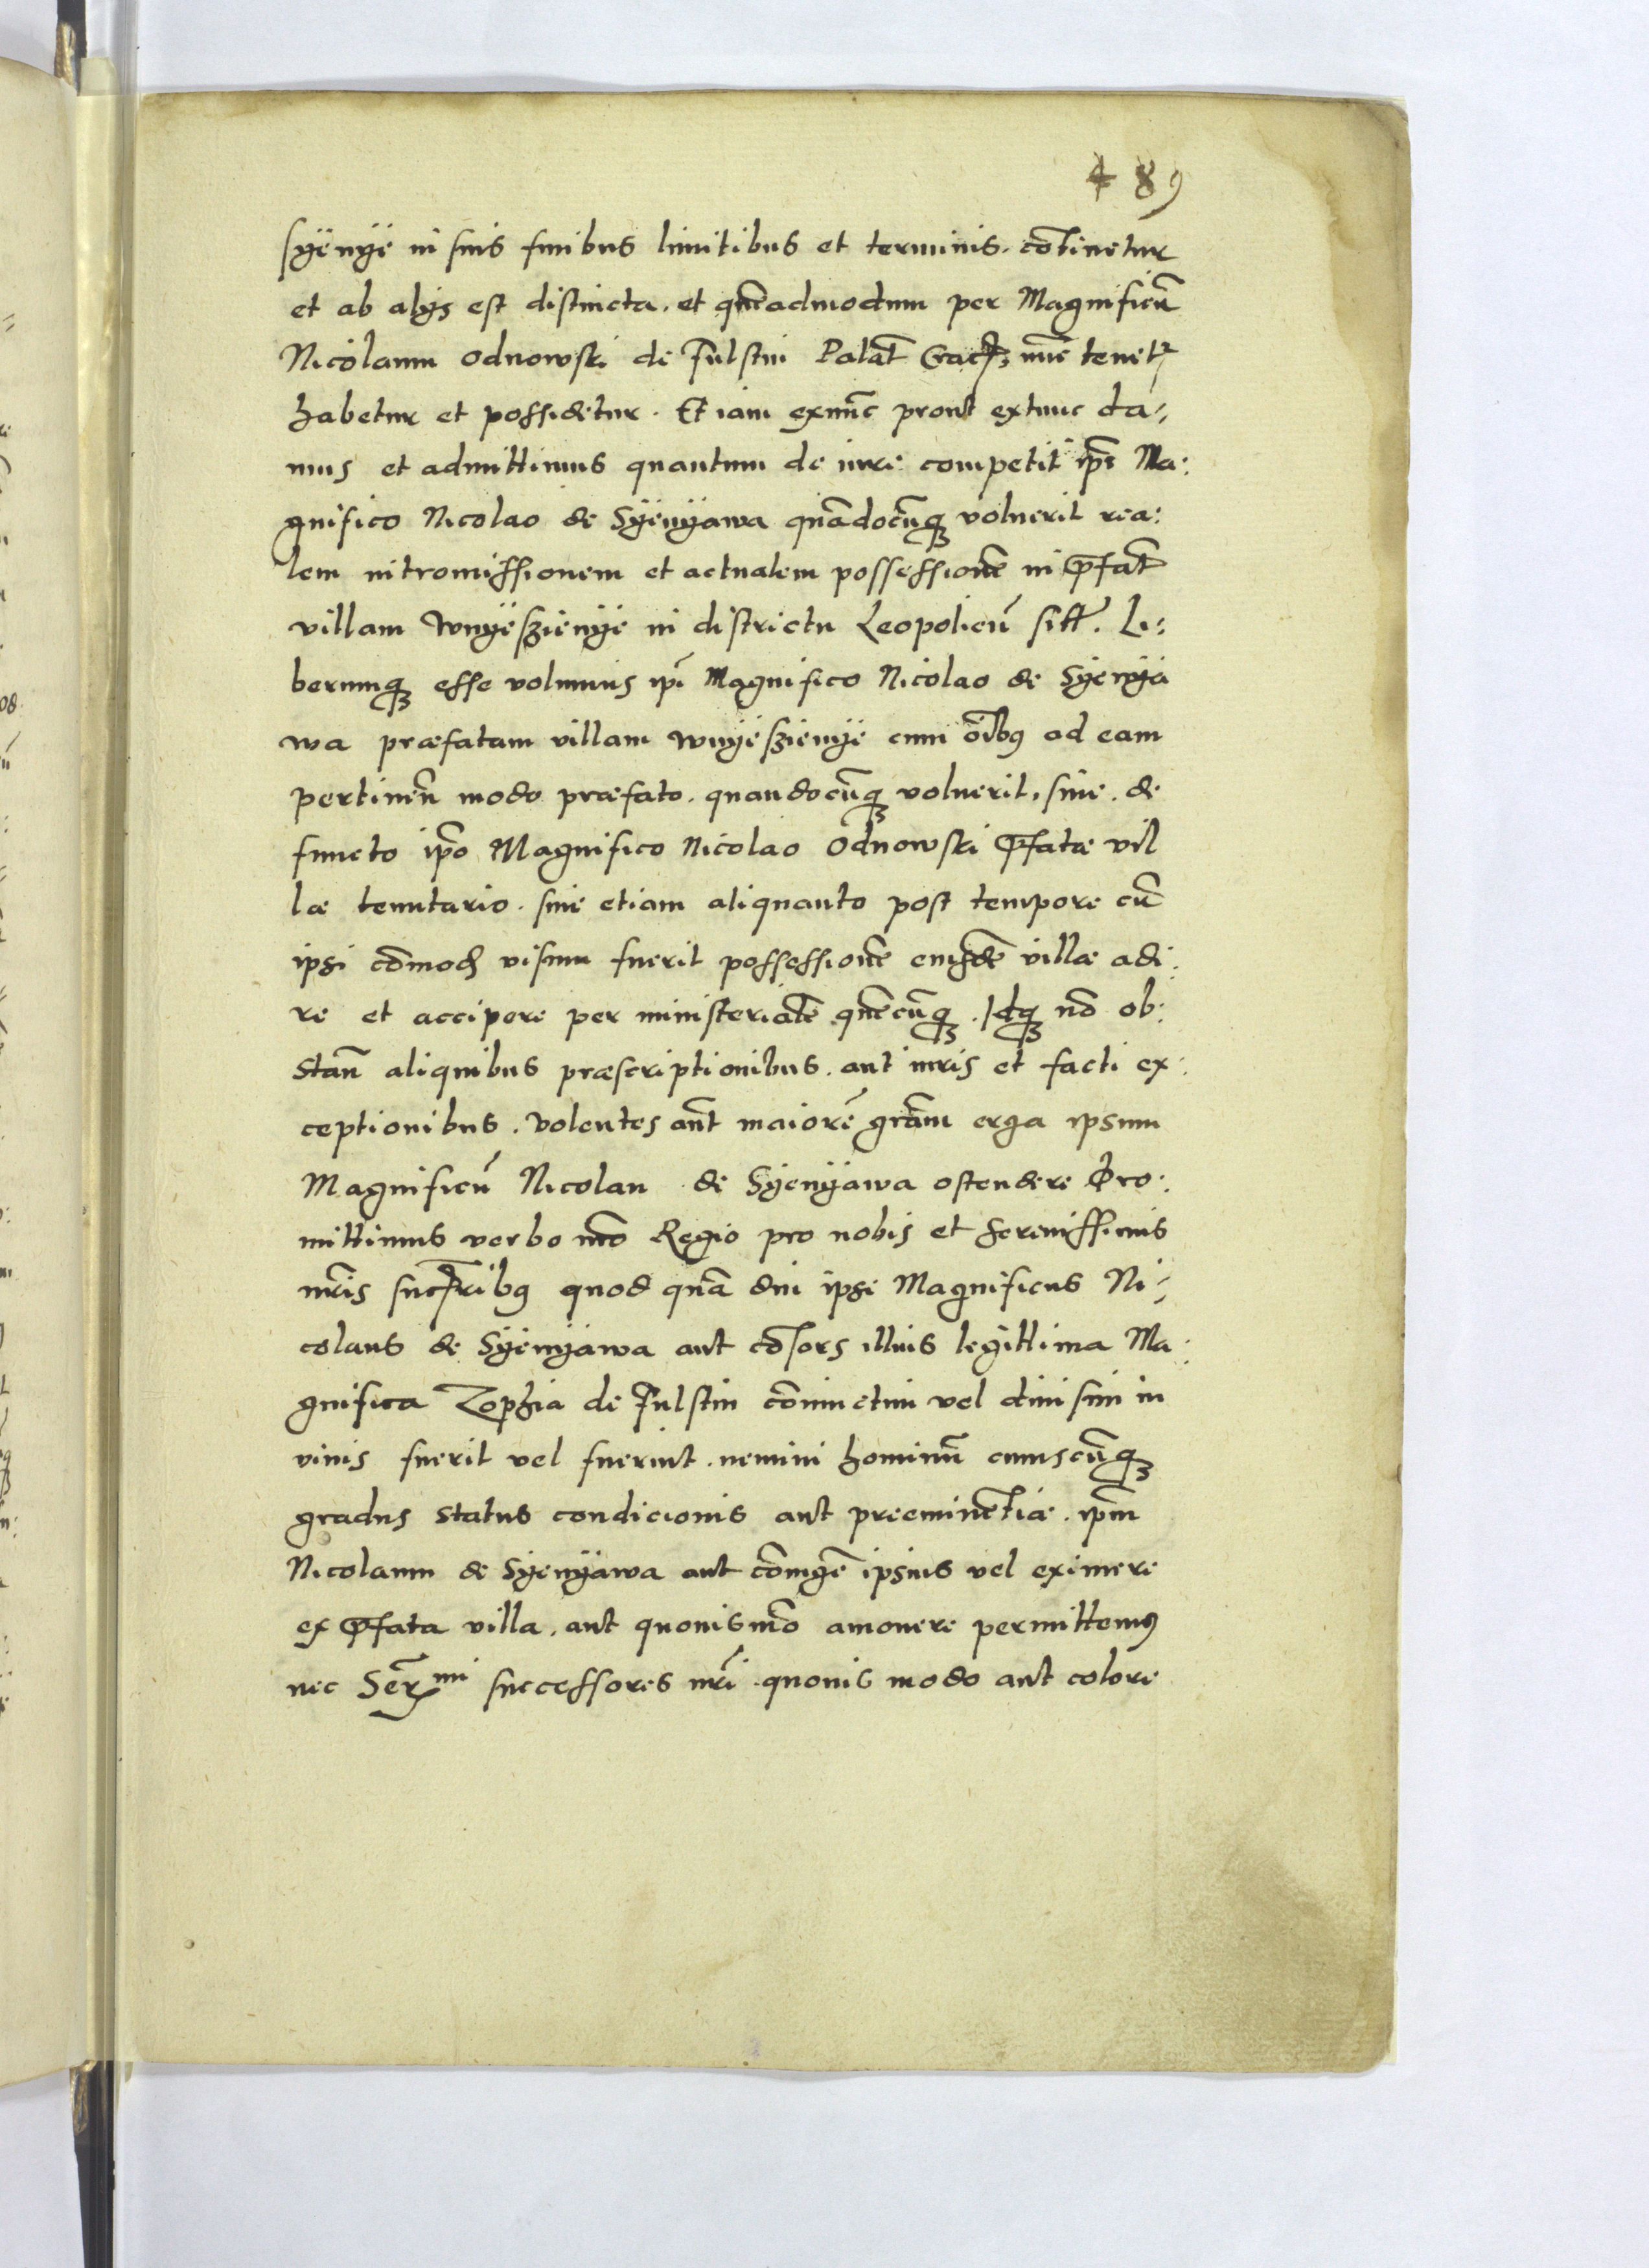 489
syënÿe in suis finibus limitibus et terminis. cōtinetur
et ab alijs est distincta. et quēadmodum per Magnificū
Nicolaum Odnowski de Fulstin Palat̄ Crac̄ nūc tenet̄
habetur et possidetur. Et iam exnūc prout extunc da⸗
mus et admittimus quantum de iure competit ip̄i Ma:
gnifico Nicolao de Syënÿawa quādocūq̨ voluerit rea:
lem intromissionem et actualem possessionē in p̄fat̄
villam Wnÿeszienÿe in districtu Leopolien̄ sit̄t. Li:
berumq̨ esse volumus ip̄i Magnifico Nicolao de Sÿenÿa
wa præfatam villam Wnÿeszienÿe cum oībꝰ ad eam
pertinen̄ modo præfato. quandocūq̨ voluerit, siue. de
functo ip̄o Magnifico Nicolao Odnowski p̄fatæ vil
læ tenutario. siue etiam aliquanto post tempore cū
ipsi cōmod̄ visum fuerit possessionē eiusdē villæ adi:
re et accipere per ministerialē quēcūq̨. Idq̨ nō ob:
stan̄ aliquibus præscriptionibus. aut iuris et facti ex:
ceptionibus. Volentes aūt maiorē gr̄am erga ipsum
Magnificū Nicolau de Sÿenÿawa ostendere Pro:
mittimus verbo nr̄o Regio pro nobis et serenissimis
nr̄is succr̄ibꝰ quod quā diu ipse Magnificus Ni⸗
colaus de Sÿenÿawa aut cōsors illius legittima Ma:
gnifica Zophia de Fulstin cōiunctim vel diuisim in
viuis fuerit vel fuerint. nemini hominū cuiuscūq̨
gradus status condicionis aut preeminētiæ. ip̄m
Nicolaum de Sÿenÿawa aut cōiugē ipsius vel eximere
ex p̄fata villa. aut quouismō amouere permittemꝰ
nec Ser̄mi successores nr̄i quouis modo aut colore